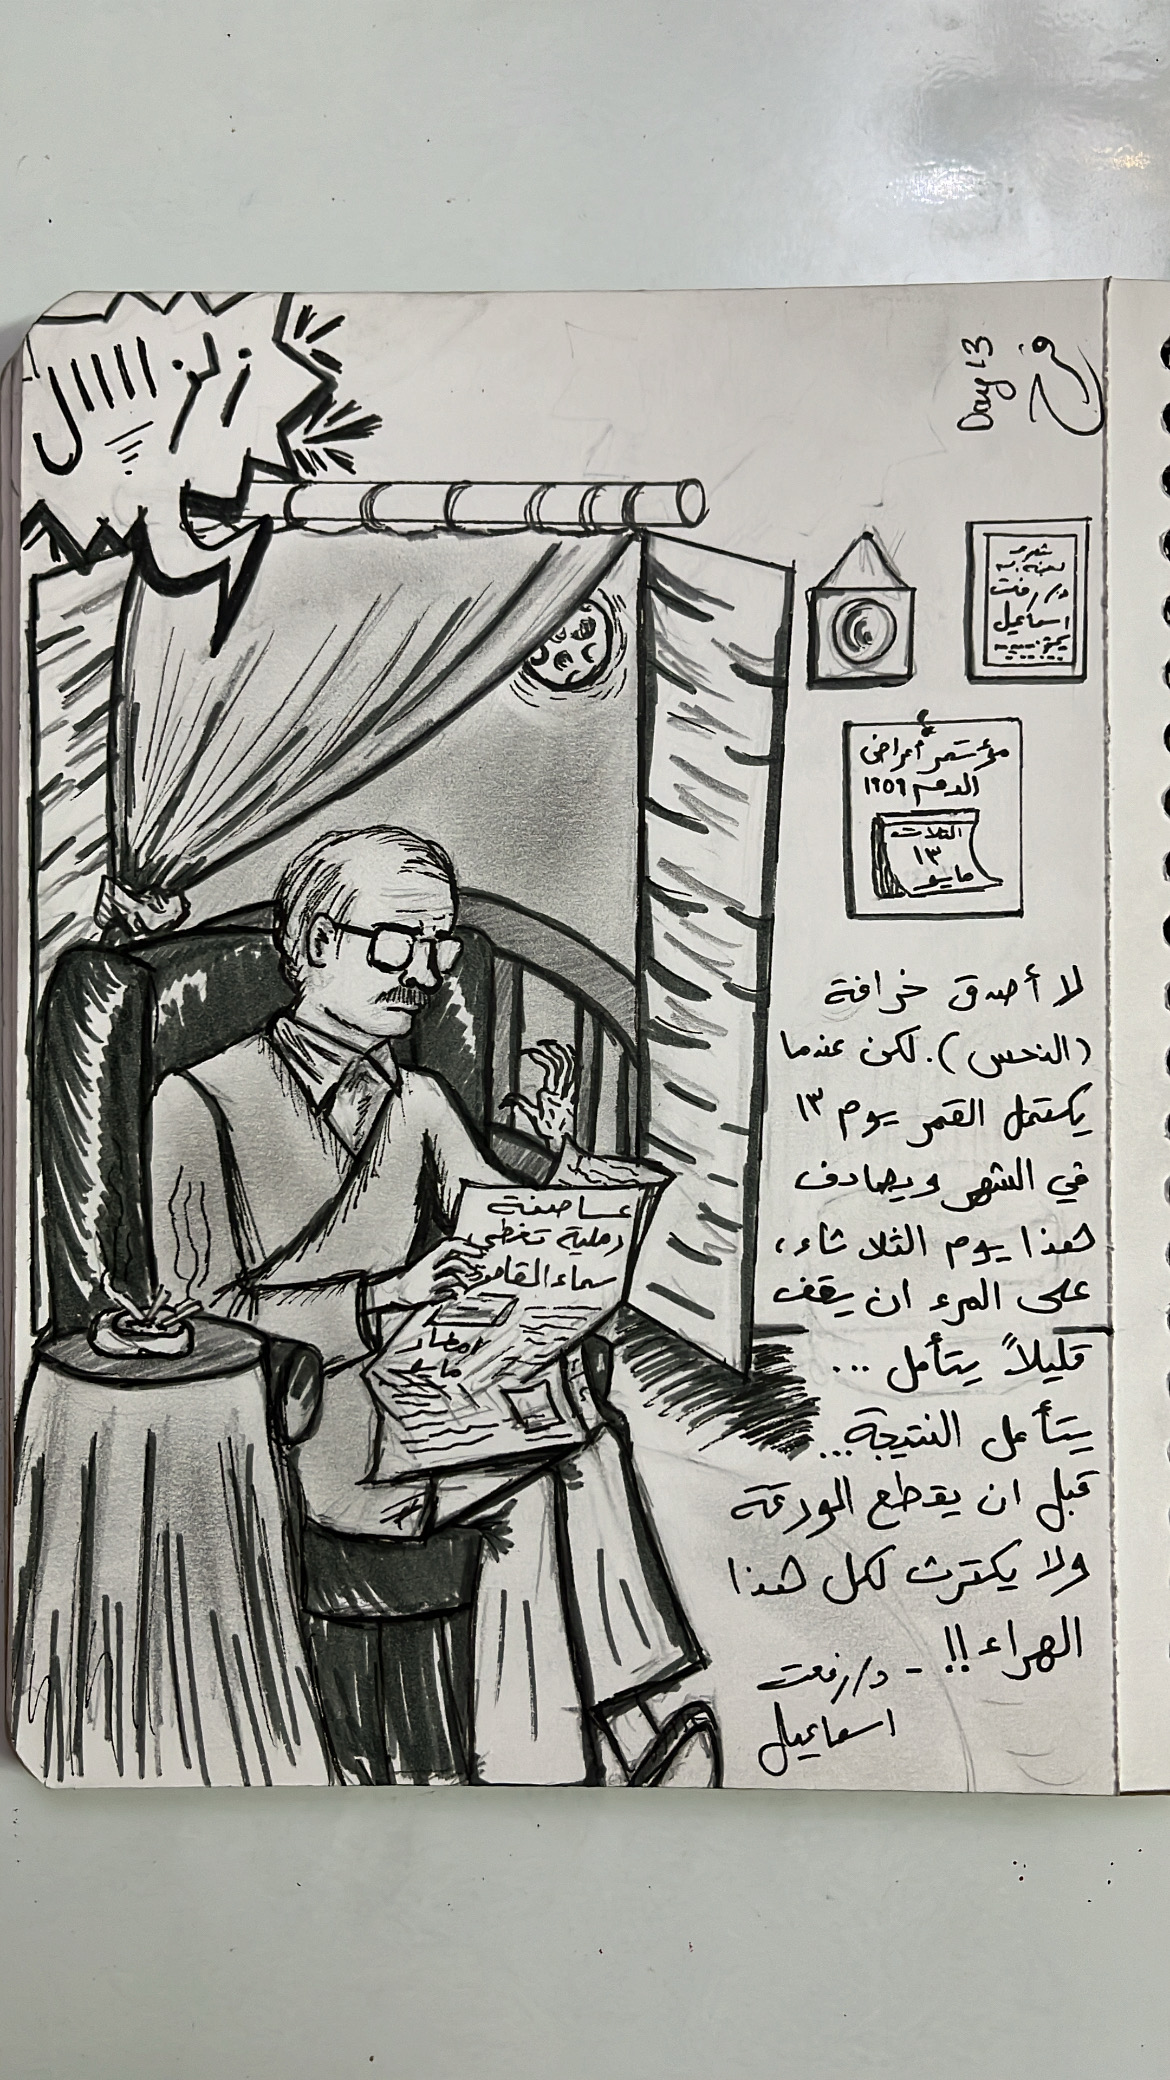 زلزااااال
Day 13
فرح
شهرة
د/ رفعت
اسماعيل
مؤتمر أمراض
الدم ١٩٥٩
الثلاث
١٣
مايو
عاصفة
رملية تغطي
سماء القاهرة
امطار
مايو
لا أصدق خرافة
(النحس). لكن عندما
يكتمل القمر يوم ١٣
في الشهر ويصادف
هذا يوم الثلاثاء،
على المرء ان يقف
قليلاً يتأمل ...
يتأمل النتيجة...
قبل ان يقطع الورقة
ولا يكترث لكل هذا
الهراء !! - د/ رفعت
اسماعيل